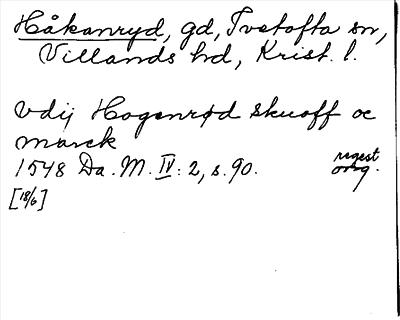 Håkanryd, gd, Tvetofta sn,
Villands hd, Krist. l.
vdij Hogenrød skuoff oc
marck
1548 Da. M. IV: 2, s. 90. regest
orig.
[18/6]